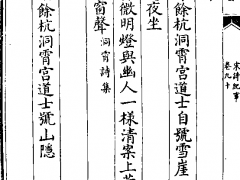 宋詩紀事
卷九十
餘杭洞霄宮道士自號雪崖
夜坐
微明燈與幽人一様清案上
窗聲洞霄詩集
餘杭洞霄宮道士號山隱